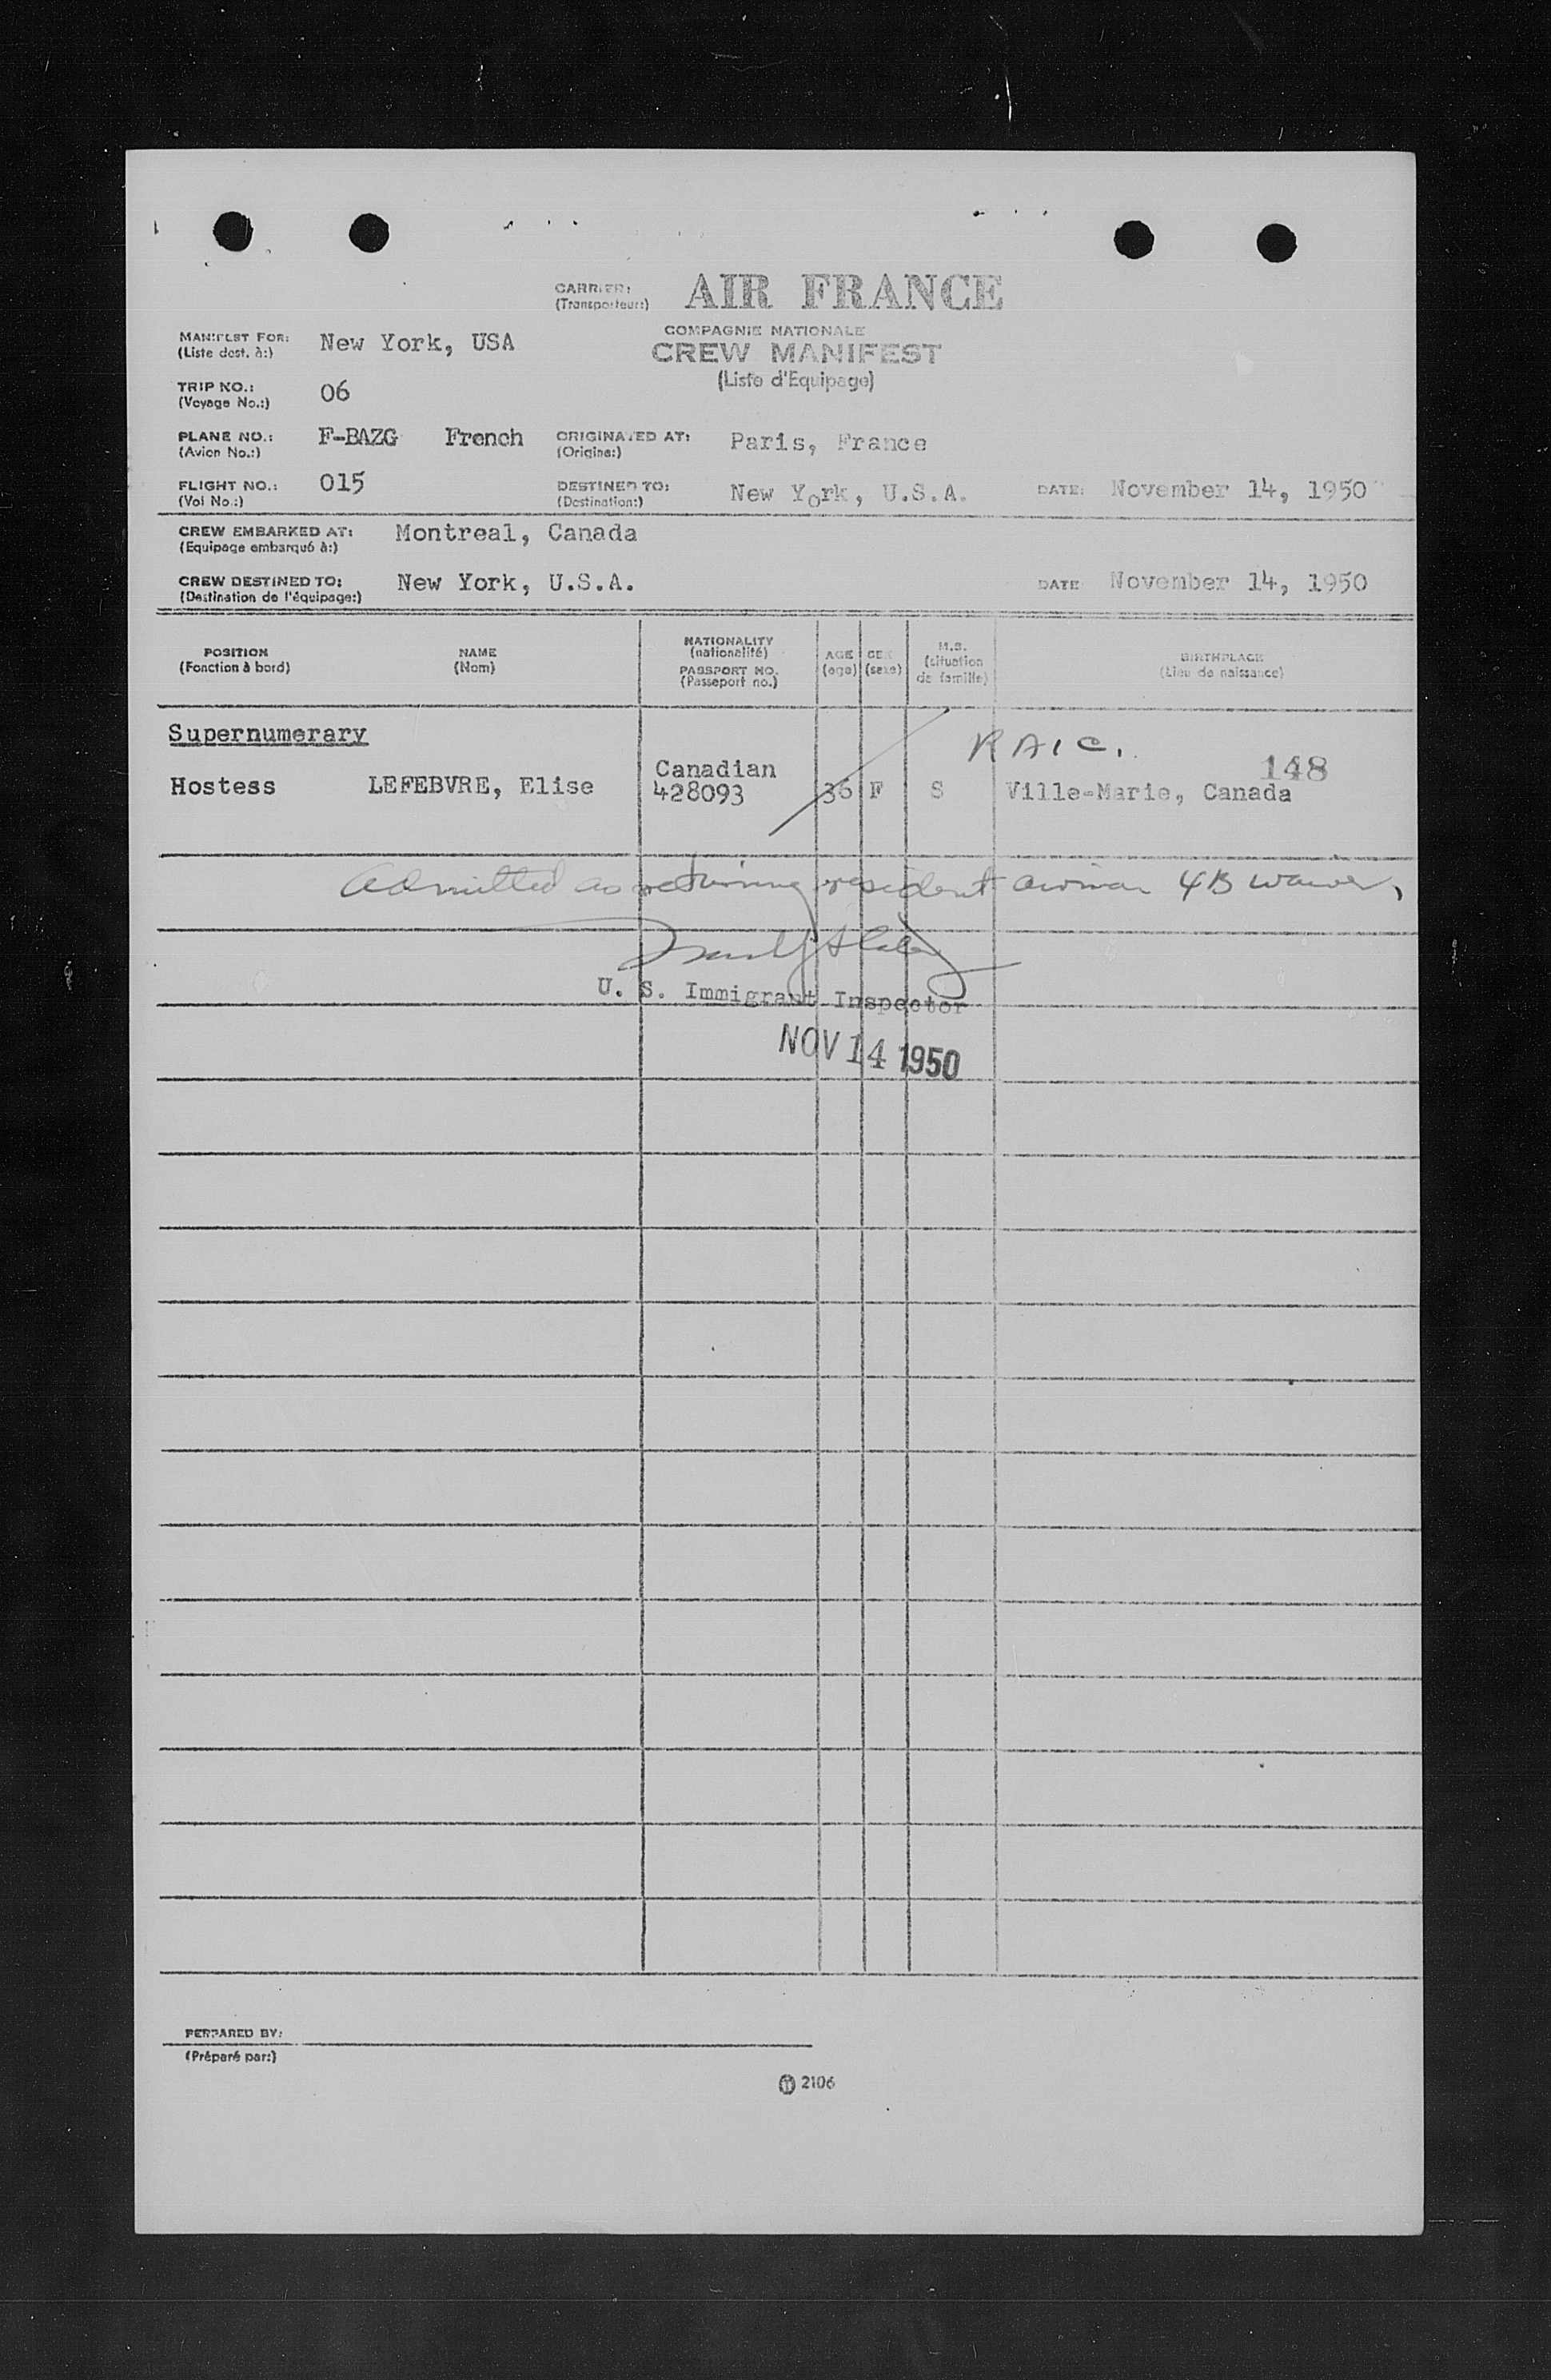 CARRIER: AIR FRANCE
(Transporteur:)
COMPAGNIE NATIONALE
MANIFEST FOR: New York, USA
(Liste dest. à:)
CREW MANIFEST
(Liste d'Equipage)
TRIP NO.: 06
(Voyage No.:)
PLANE NO.: F-BAZG French ORIGINATED AT: Paris, France
(Avion No.:) (Origine:)
FLIGHT NO.: 015 DESTINED TO: New York, U.S.A. DATE: November 14, 1950
(Vol No.:) (Destination:)
CREW EMBARKED AT: Montreal, Canada
(Equipage embarqué à:)
CREW DESTINED TO: New York, U.S.A. DATE November 14, 1950
(Destination de l'équipage:)
POSITION NAME NATIONALITY AGE SEX M.S. BIRTHPLACE
(Fonction à bord) (Nom) (nationalité) (age) (sexe) (situation de famille) (Lieu de naissance)
PASSPORT NO.
(Passeport no.)
Supernumerary
RAIC.
148
Hostess LEFEBVRE, Elise Canadian 428093 36 F S Ville-Marie, Canada
Admitted as returning resident airman 4B waiver,
U. S. Immigrant Inspector
NOV 14 1950
PERPARED BY:
(Préparé par:)
2106